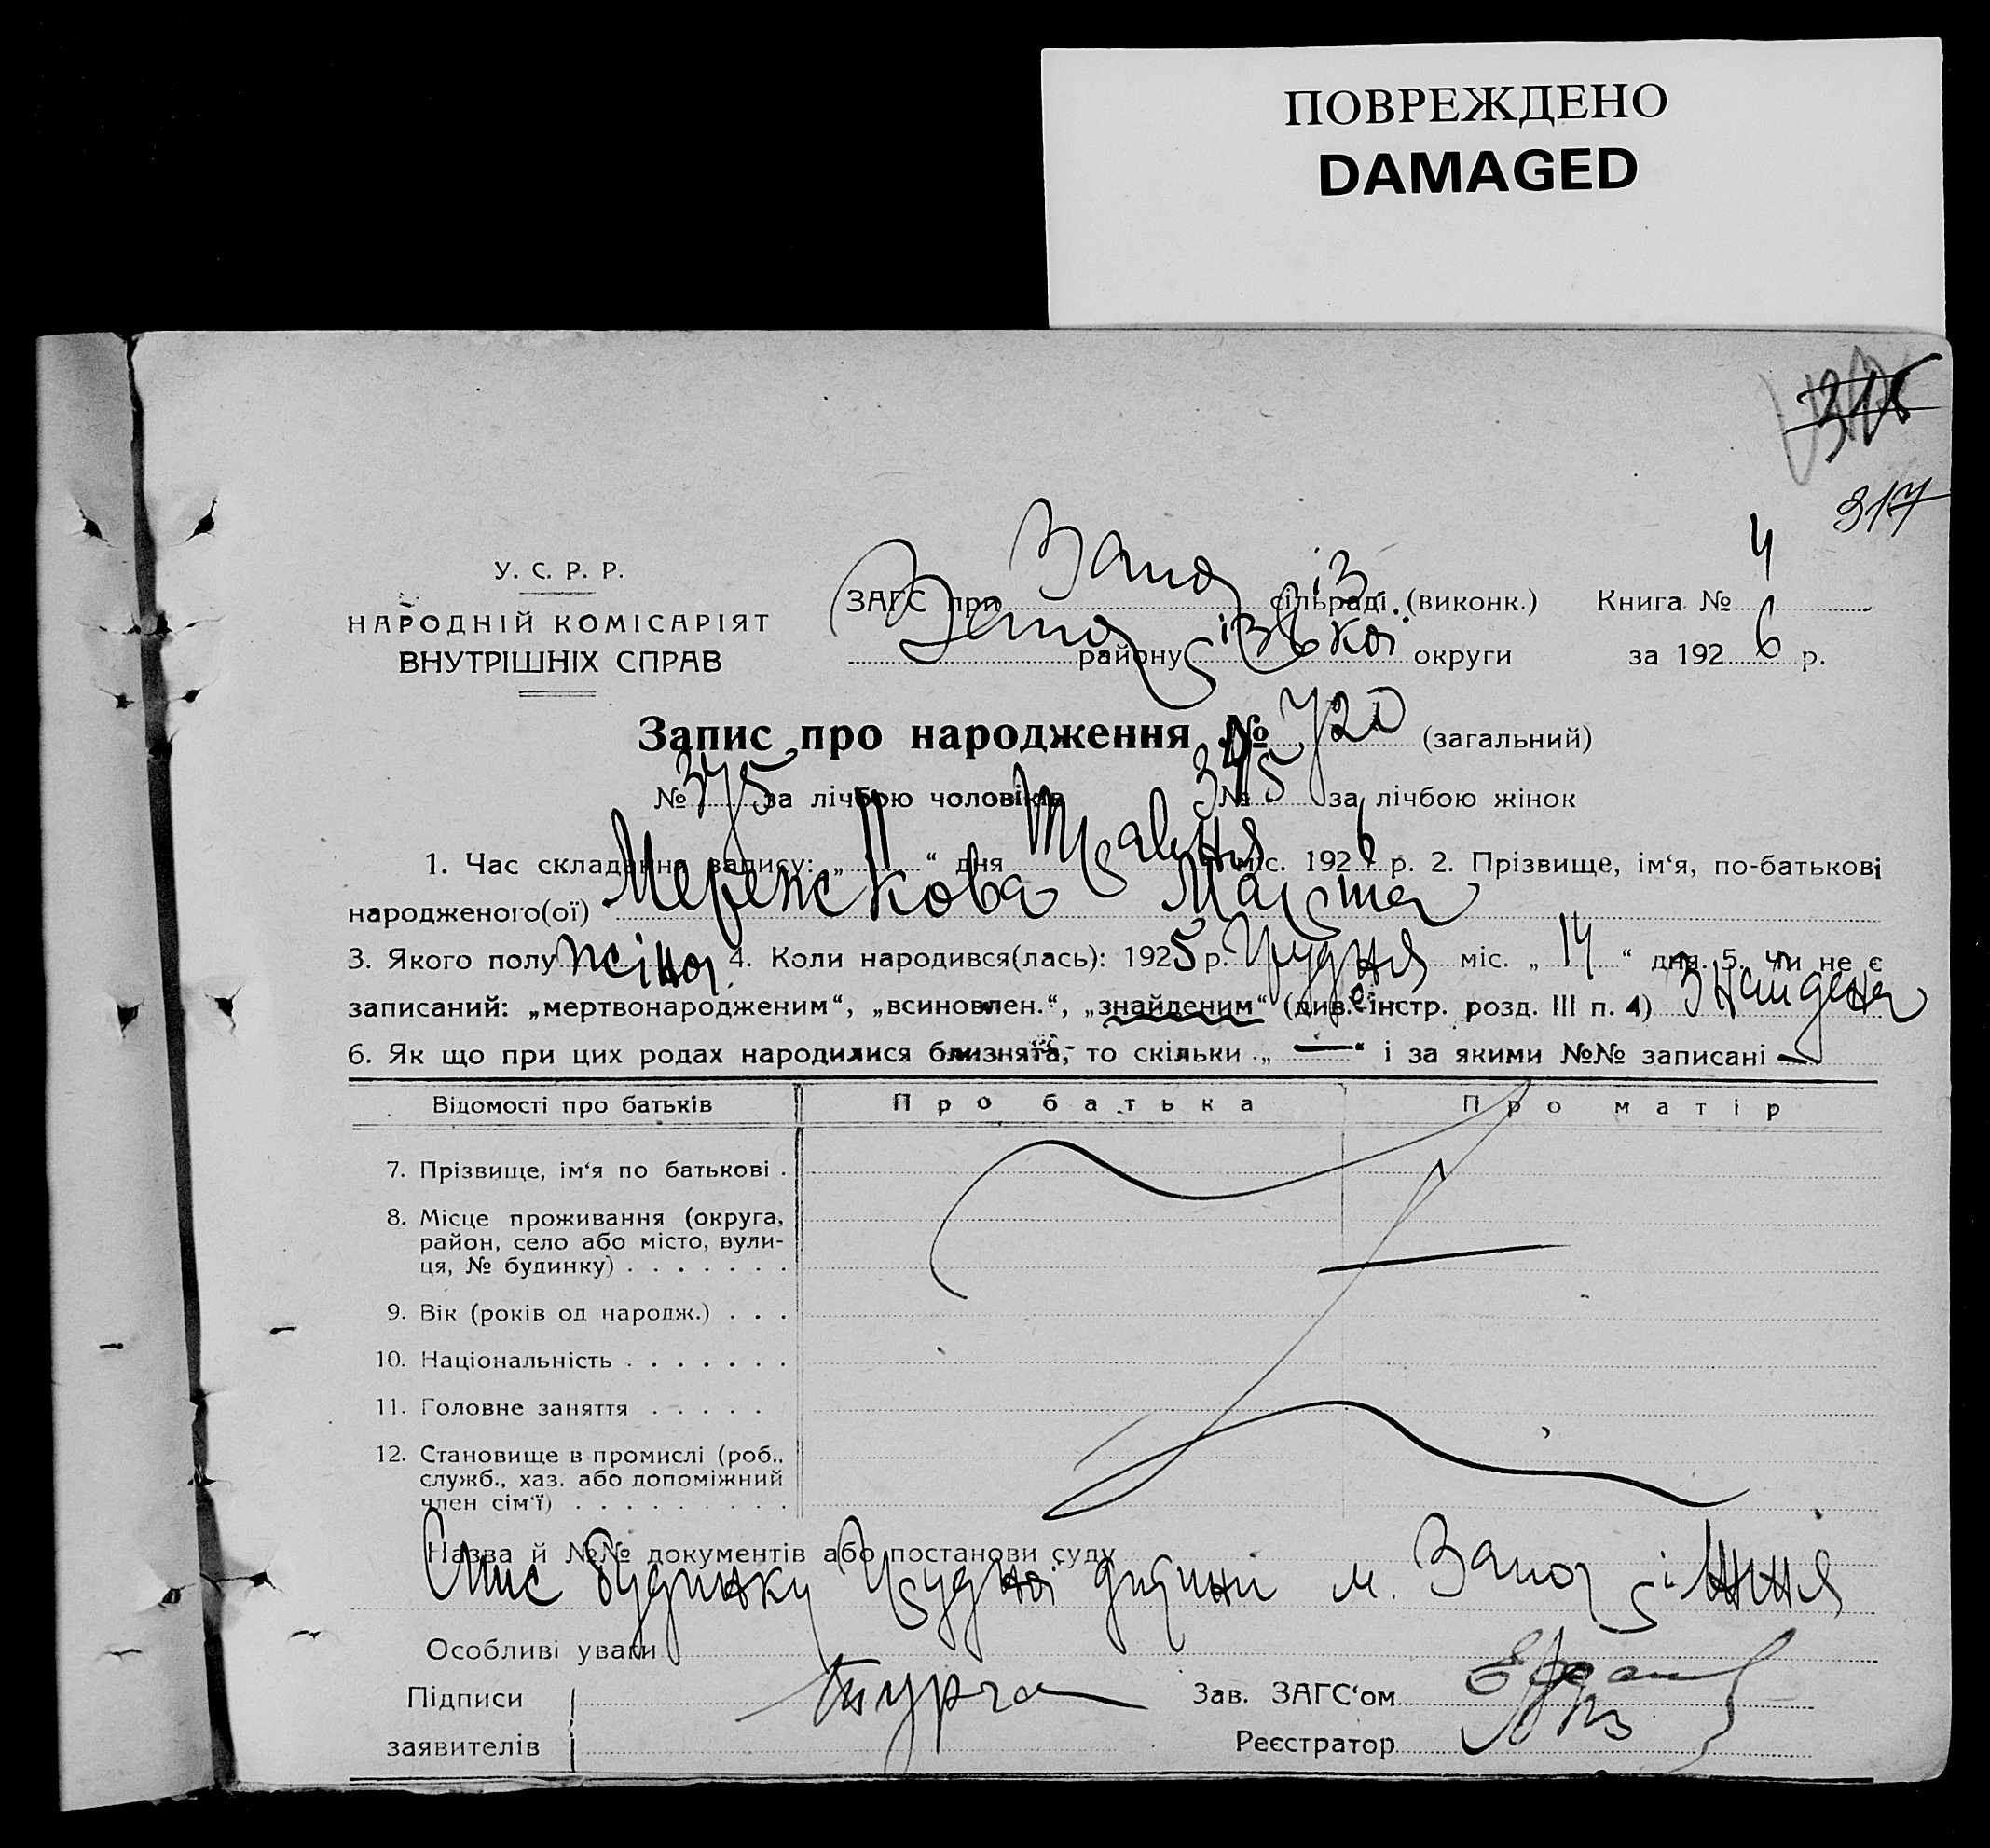 ПОВРЕЖДЕНО
DAMAGED
315
317
У. С. Р. Р.
НАРОДНІЙ КОМІСАРІЯТ
ВНУТРІШНІХ СПРАВ
ЗАГС при Запоріз. сільраді (виконк.) Книга № 4
Запорізької району округи за 1926 р.
Запис про народження № 720 (загальний)
№ 375 за лічбою чоловіків № 345 за лічбою жінок
1. Час складання запису: „11“ дня Травня міс. 1926 р. 2. Прізвище, ім‘я, по-батькові
народженого(ої) Мережкова Марта
3. Якого полу жіно. 4. Коли народився(лась): 1925 р. Грудня міс. „14“ дня. 5. Чи не є
записаний: „мертвонародженим“, „всиновлен.“, „знайденим“ (див. інстр. розд. III п. 4) Знайдена
6. Як що при цих родах народилися близнята, то скільки „—“ і за якими №№ записані —
Відомості про батьків Про батька Про матір
7. Прізвище, ім‘я по батькові .
8. Місце проживання (округа,
район, село або місто, вули-
ця, № будинку) . . . . . . .
9. Вік (років од народж.) . . .
10. Національність . . . . . . .
11. Головне заняття . . . . .
12. Становище в промислі (роб.,
служб., хаз. або допоміжний
член сім‘ї) . . . . . . . . .
Назва й №№ документів або постанови суду
будинку Грудної дитини м. Запоріжжя
Особливі уваги
Підписи Зав. ЗАГС‘ом
заявителів Реєстратор